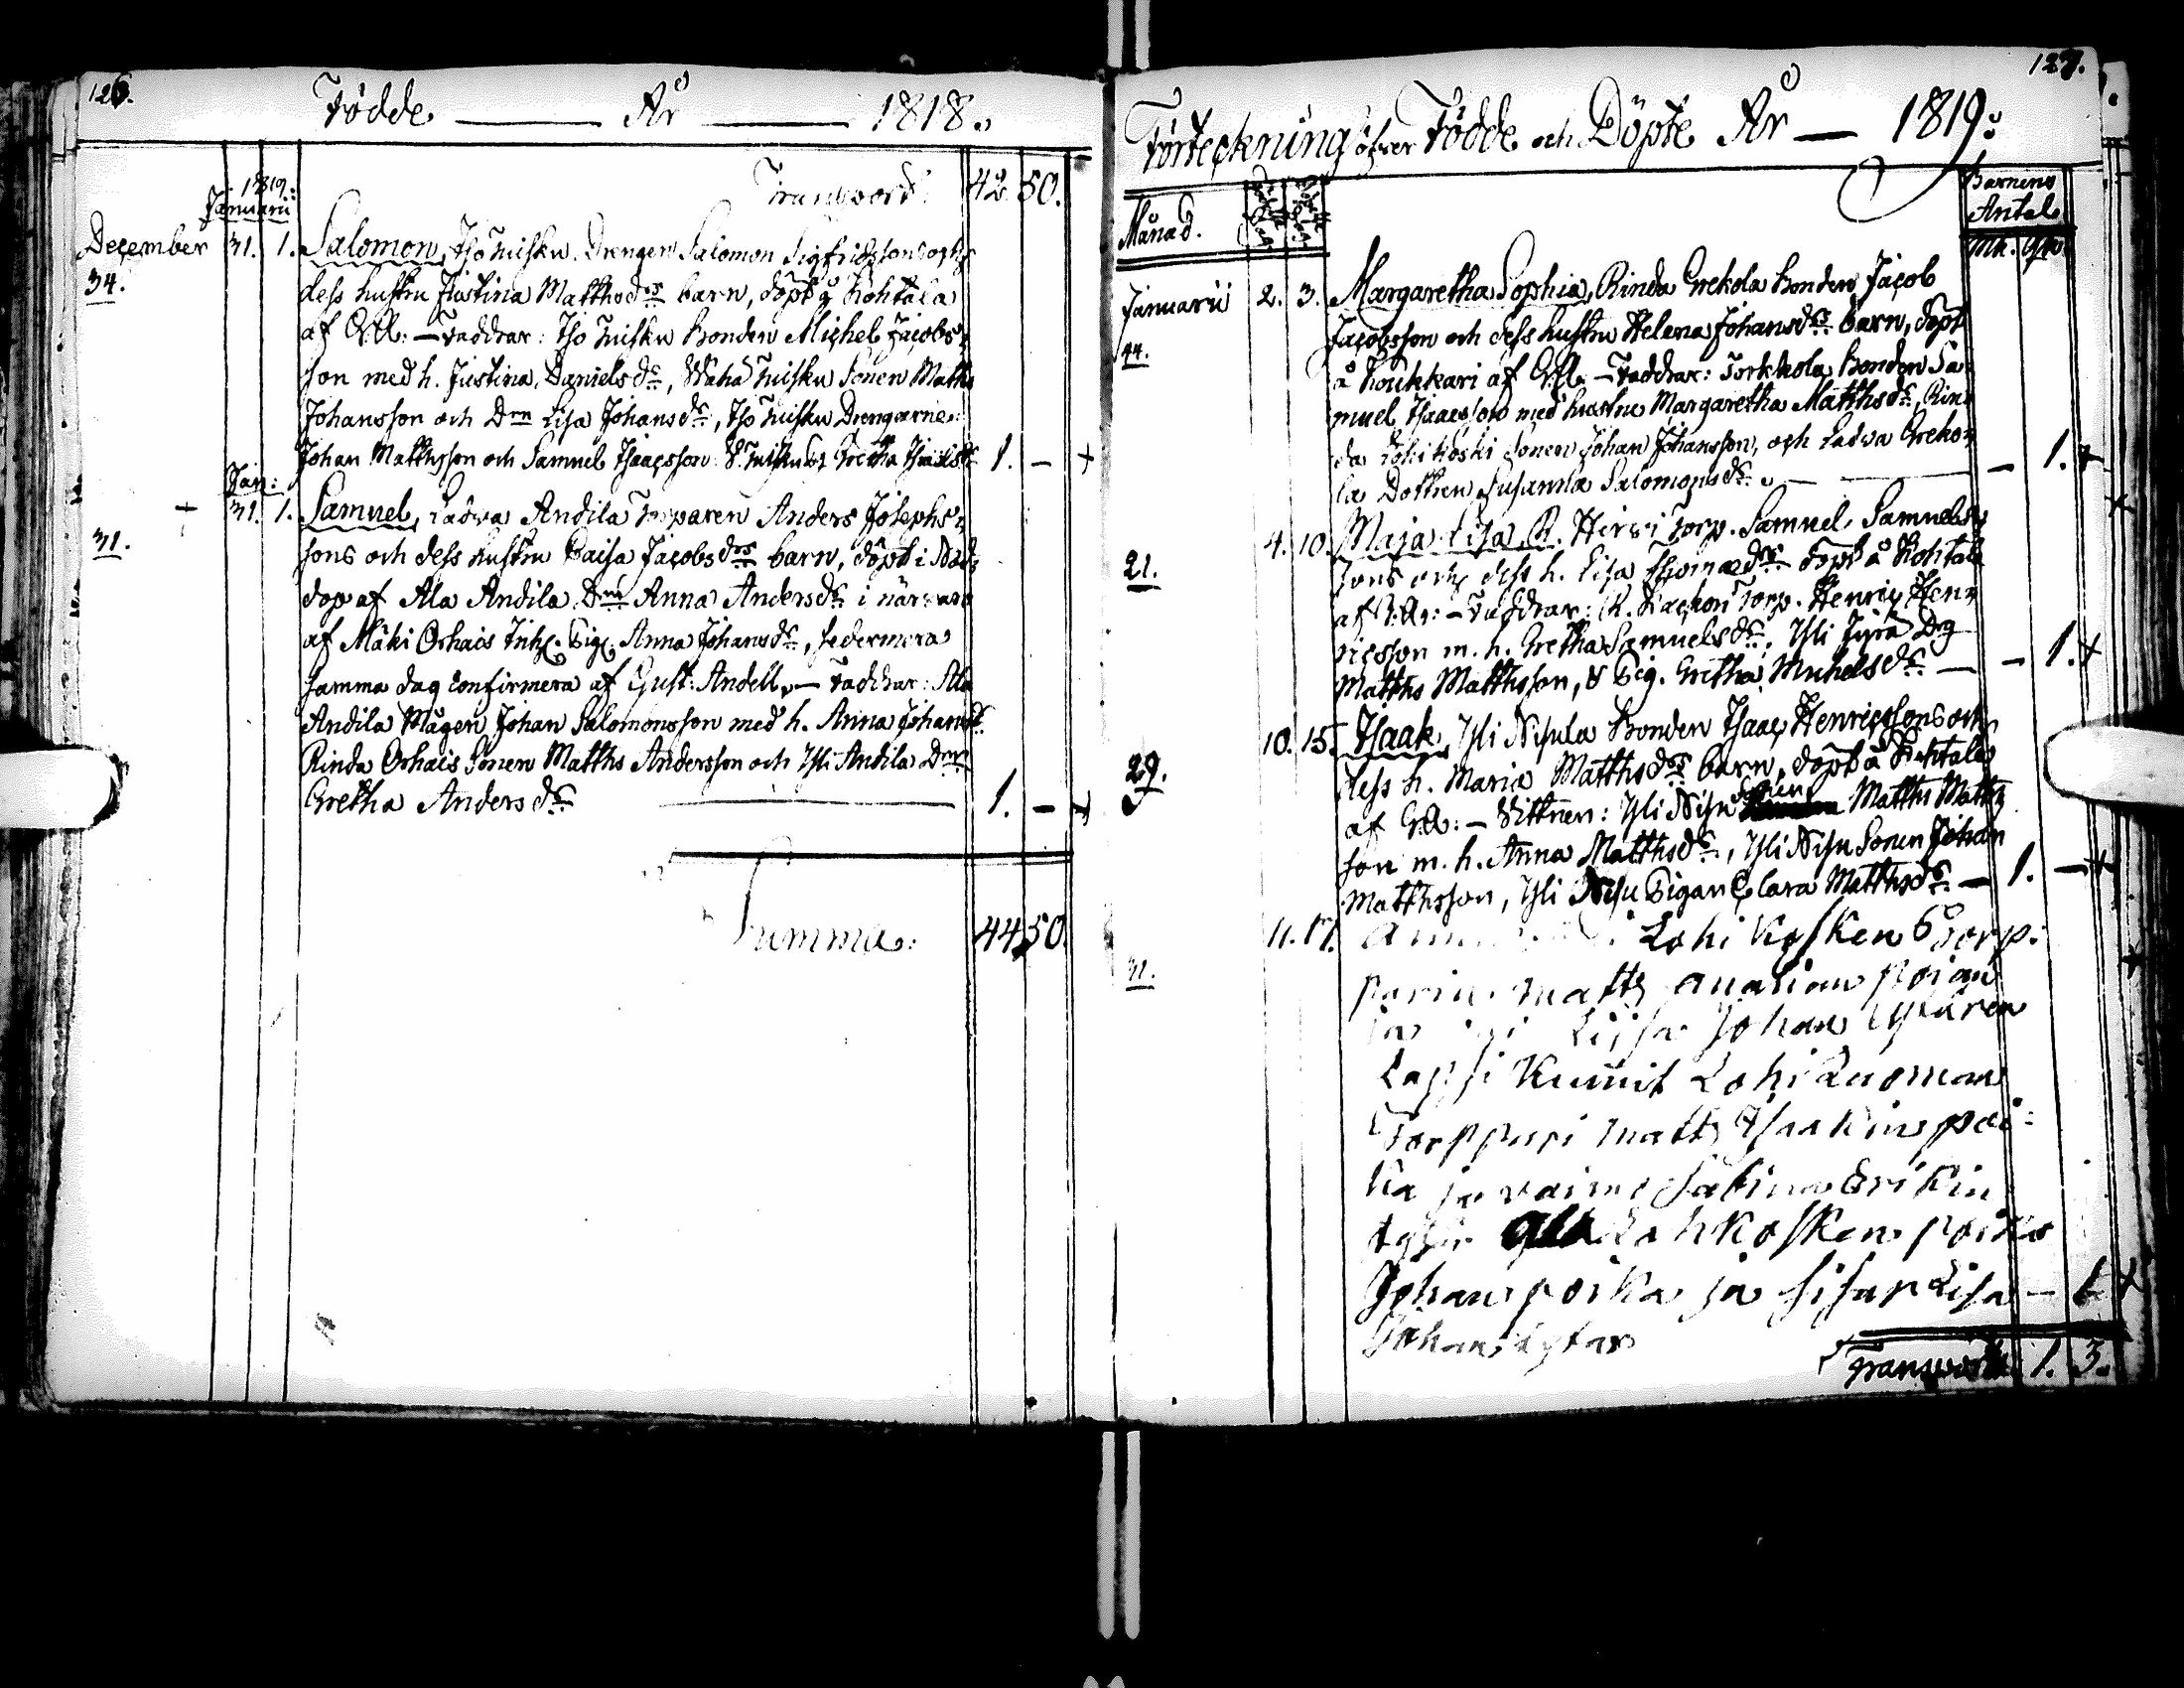 126.
Födde — År — 1818.
Transport 42. 50.
1819:
Januarii
December 31. 1. Salomon, Iso Nisku Drengen Salomon Sigfridssons och
34. dess hustru Justina Matthsdrs barn, döpt å Kohtala
af G:A: — Faddrar: Iso Nisku Bonden Michel Jacobs-
son med h. Justina Danielsdr, Wähä Nisku Sonen Matts
Johansson och Drn Lisa Johansdr, Iso Nisku Drengarne
Johan Matthsson och Samuel Isaacsson 1. — +
Jan:
+ 31. 1. Samuel, Ladva Andila Torparen Anders Josephs-
31. sons och dess hustru Caisa Jacobsdrs barn, döpt i Nöd-
dop af Ala Andila Drn Anna Andersdr i närvaro
af Mäki Orhais Inh. Pig. Anna Johansdr, sedermera
samma dag confirmera af Gust: Andell, — Faddrar: Ala
Andila Mågen Johan Salomonsson med h. Anna Johansdr
Rinda Orhais Sonen Matths Andersson och Yli Andila Drn
Gretha Andersdr — 1. — +
Summa: 44 50.
127.
Förteckning öfver Födde och Döpte År — 1819:
Månad. Barnens
Antal
Mk. Qk.
Januarii 2. 3. Margaretha Sophia, Rinda Grekola Bonden Jacob
44. Jacobsson och dess hustru Helena Johansdrs barn, döpt
å Koukkari af G:A: — Faddrar: Torkkola Bonden Sa-
muel Isaacsson med hustru Margaretha Matthsdr, Rin-
da Lohikoski Sonen Johan Johansson, och Ladva Greko-
la Dottren Susanna Salomonsdr. — — 1. +
4. 10. Maja Lisa, R. Hirvi Torp. Samuel Samuels-
21. sons och dess h. Lisa Thomædrs döpt å Kohtala
af G:A: — Faddrar: R. Torp. Henric Hen-
ricsson m. h. Gretha Samuelsdr, Yli Jyrä Drg
Matths Matthsson, & Pig. Gretha Michelsdr — — 1. +
10. 15. Isaak, Yli Nisula Bonden Isaac Henricssons och
29. dess h. Maria Matthsdrs barn, döpt å Kohtala
af G:A: — Vittnen: Yli Nisu Sonen Matths Matts-
son m. h. Anna Matthsdr, Yli Nisu Sonen Johan
Matthsson, Yli Nisu Pigan Clara Matthsdr — 1. — +
11. 17. Lohi Kosken Torp:
31. parin Matts poian
ja Liisa Johan tytären
Lapsi Kumit Lohi Luoman
Torppari Matts Isaakin poi-
ka ja vaimo Sabina Erikin
tytär Lohikosken poika
Johans poika ja Sisar Lisa — 1. +
Johans tytär
Transport 1. 3.